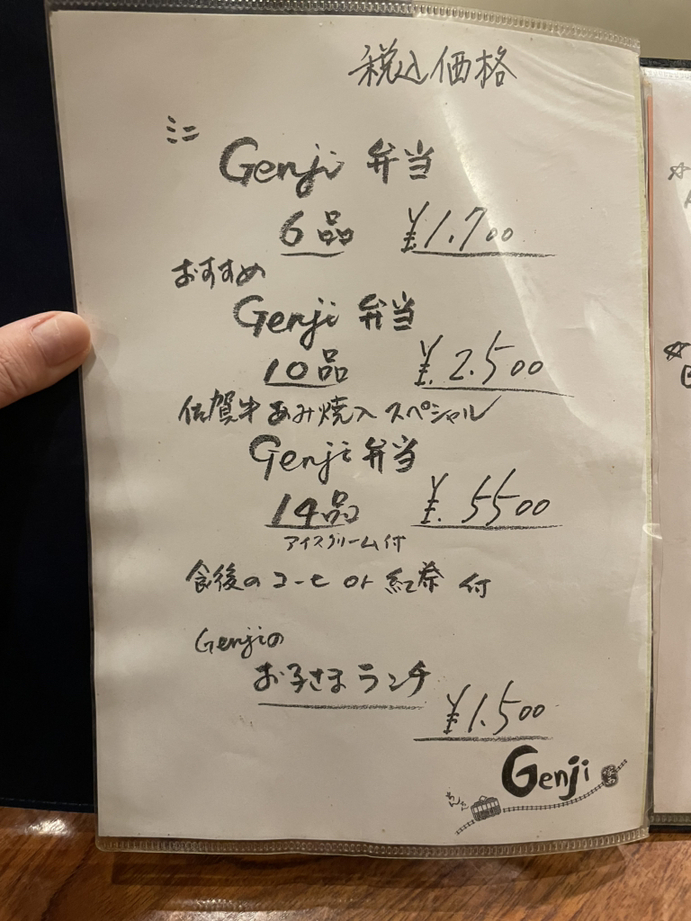 税込価格
ミニ
Genji 弁当
6品 ¥1.700
おすすめ
Genji 弁当
10品 ¥.2.500
佐賀牛あみ焼入スペシャル
Genji 弁当
14品 ¥.5500
アイスクリーム付
食後のコーヒ or 紅茶 付
Genjiの
お子さまランチ
¥1.500
Genji